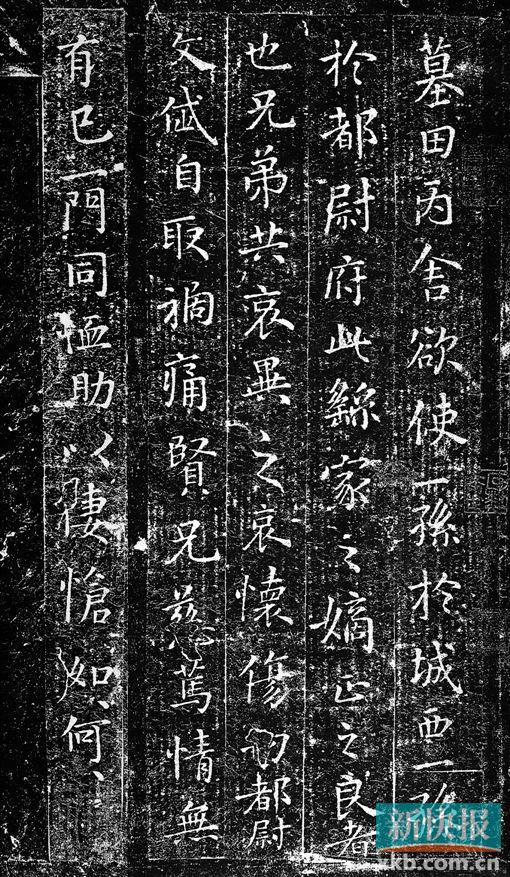 墓田丙舍欲使一孫於城西一孫
於都尉府此繇家之嫡正之良者
也兄弟共哀異之哀懷傷切都尉
文岱自取禍痛賢兄慈篤情無
有已一門同恤助以悽愴如〻何〻
新快报
xkb.com.cn